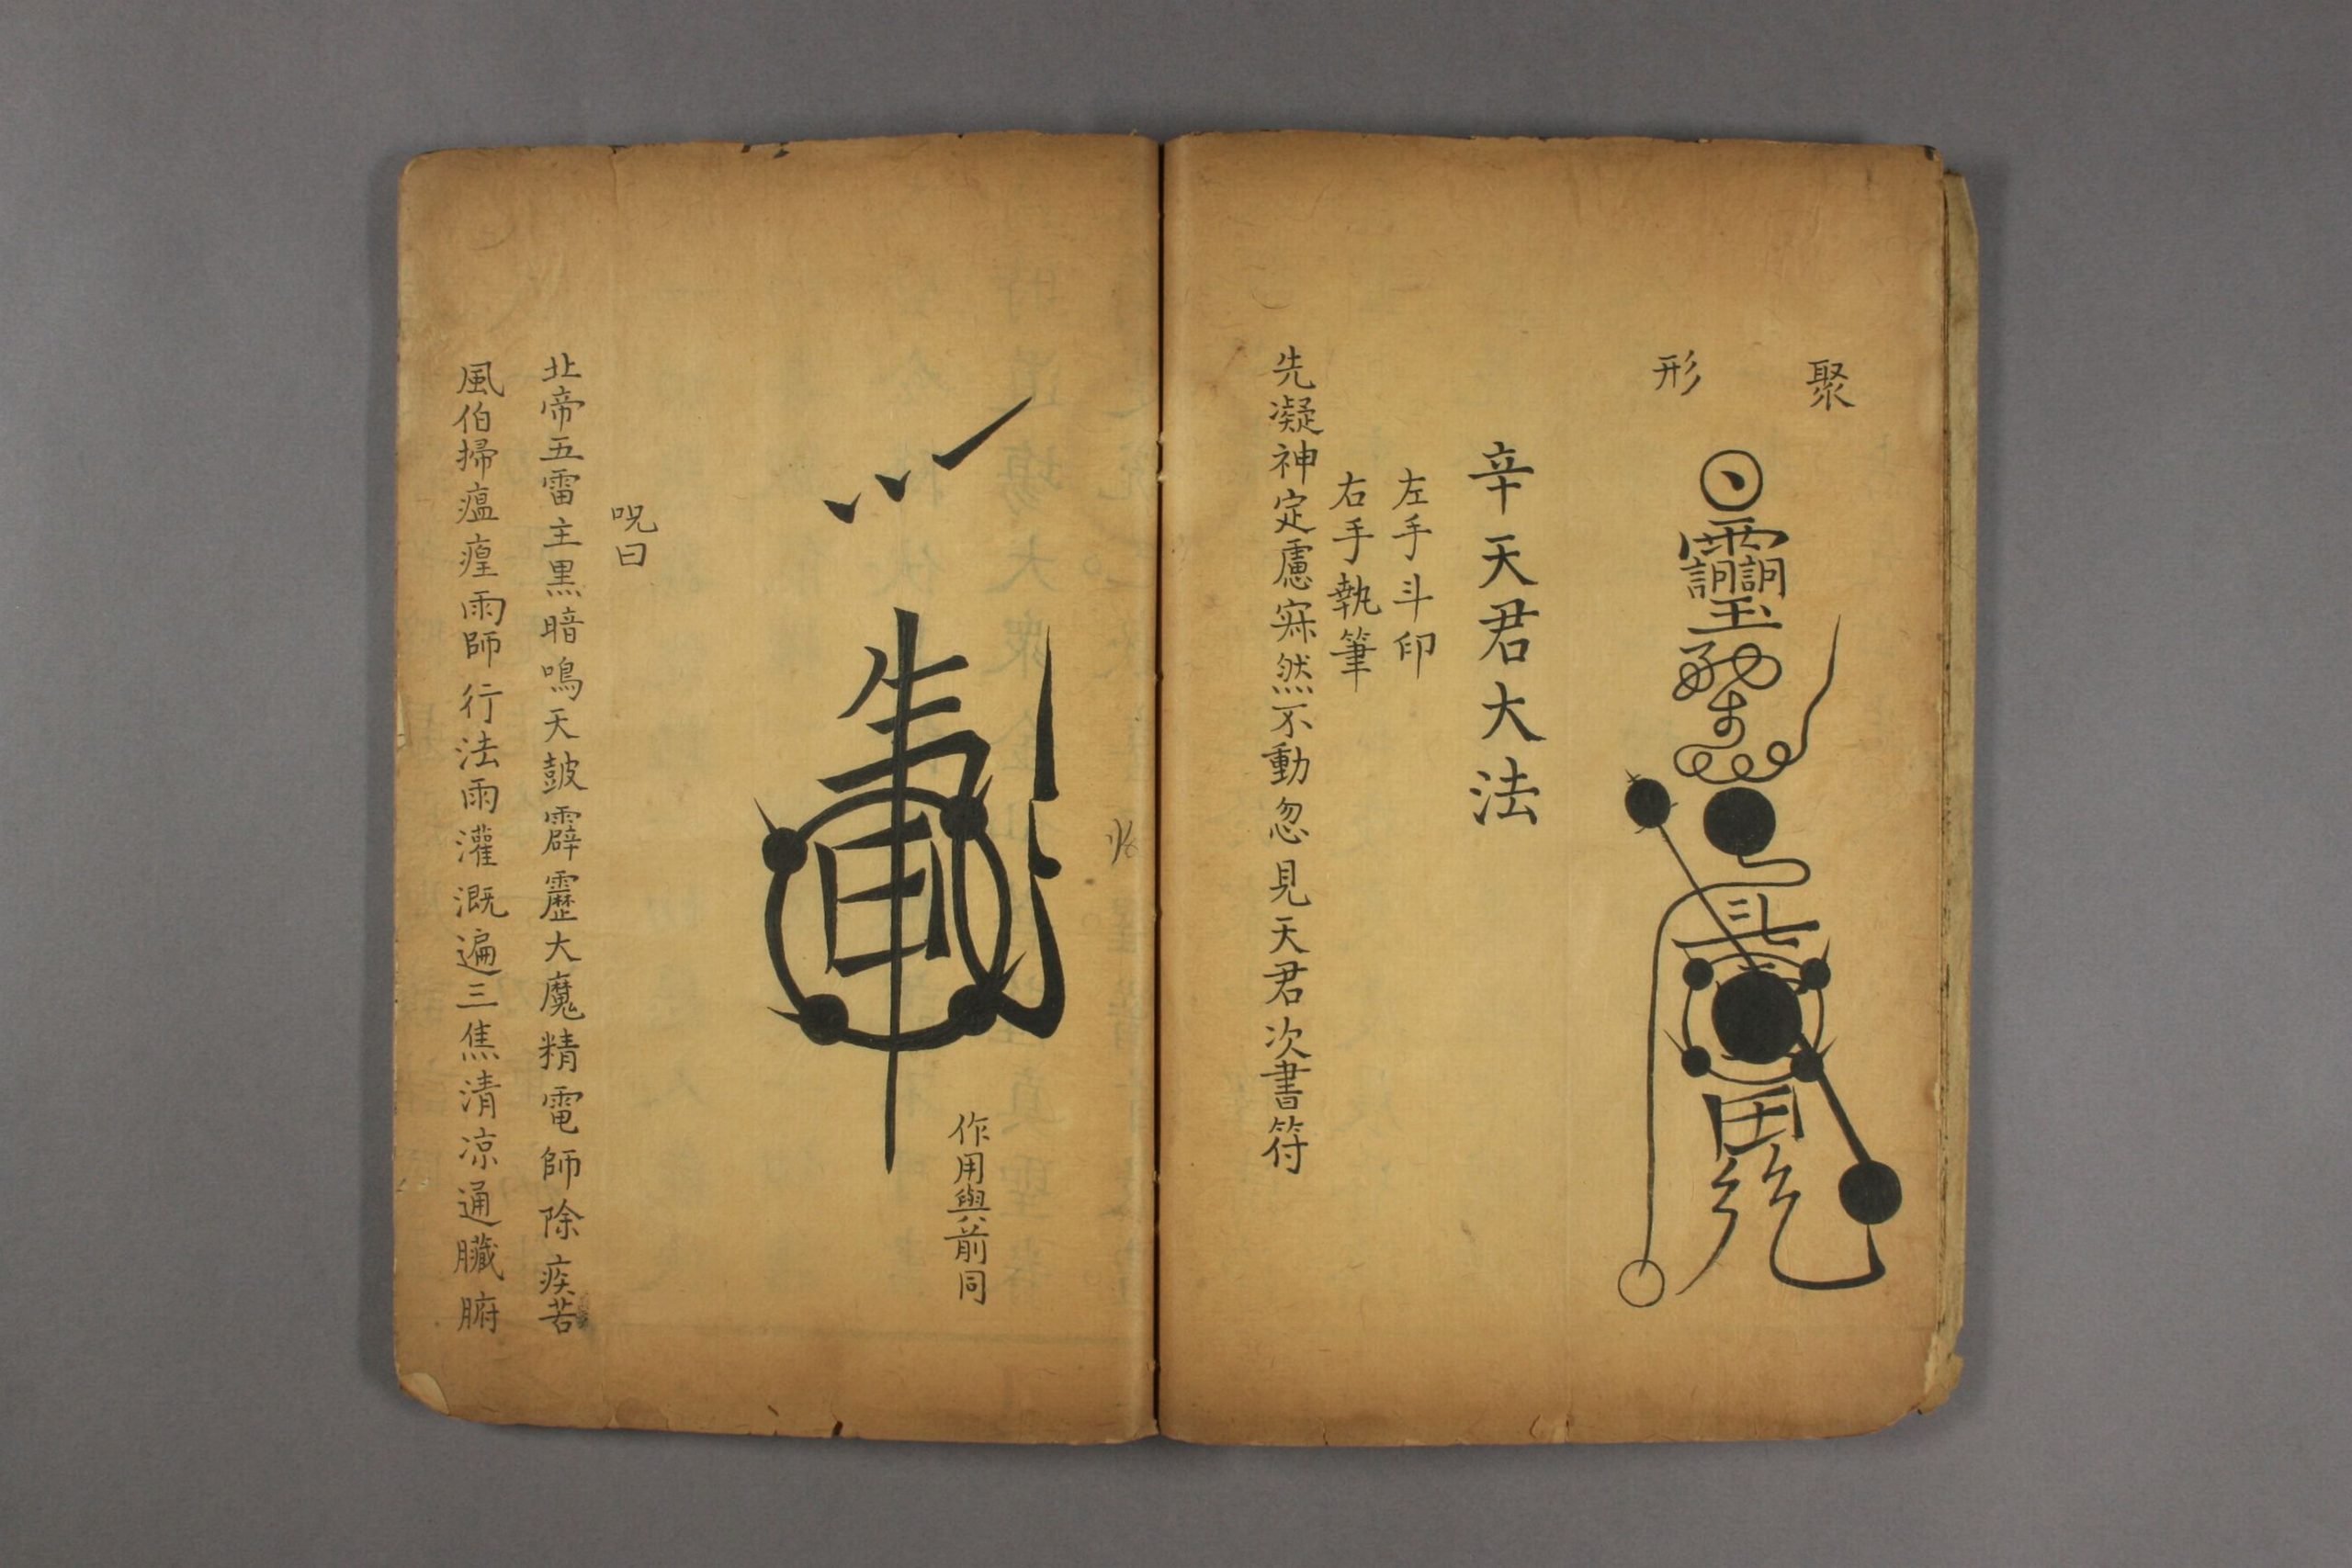 聚形
辛天君大法
左手斗印
右手執筆
先凝神定慮寂然不動忽見天君次書符
作用與前同
呪曰
北帝五雷主黑暗鳴天皷霹靂大魔精電師除疾苦
風伯掃瘟㾮雨師行法雨灌溉遍三焦清凉通臟腑